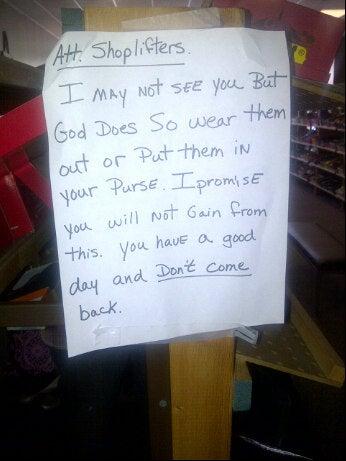 Att: Shoplifters.
I May Not See you But
God Does So wear them
out or Put them in
your Purse. I promise
you will Not Gain from
this. you have a good
day and Don't come
back.